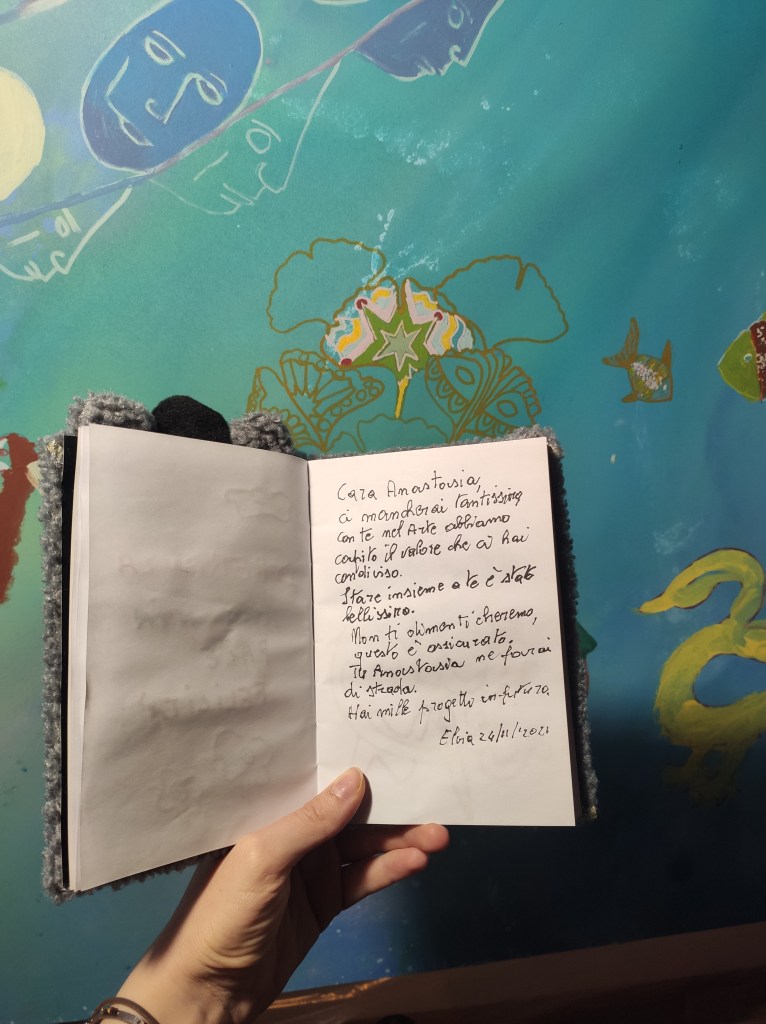 Cara Anastasia,
ci mancherai tantissimo
con te nel Arte abbiamo
capito il valore che ci hai
condiviso.
Stare insieme a te è stato
bellissimo.
Non ti dimenticheremo,
questo è assicurato.
Tu Anastasia ne farai
di strada.
Hai mille progetti in futuro.
Elvia 24/11/2021